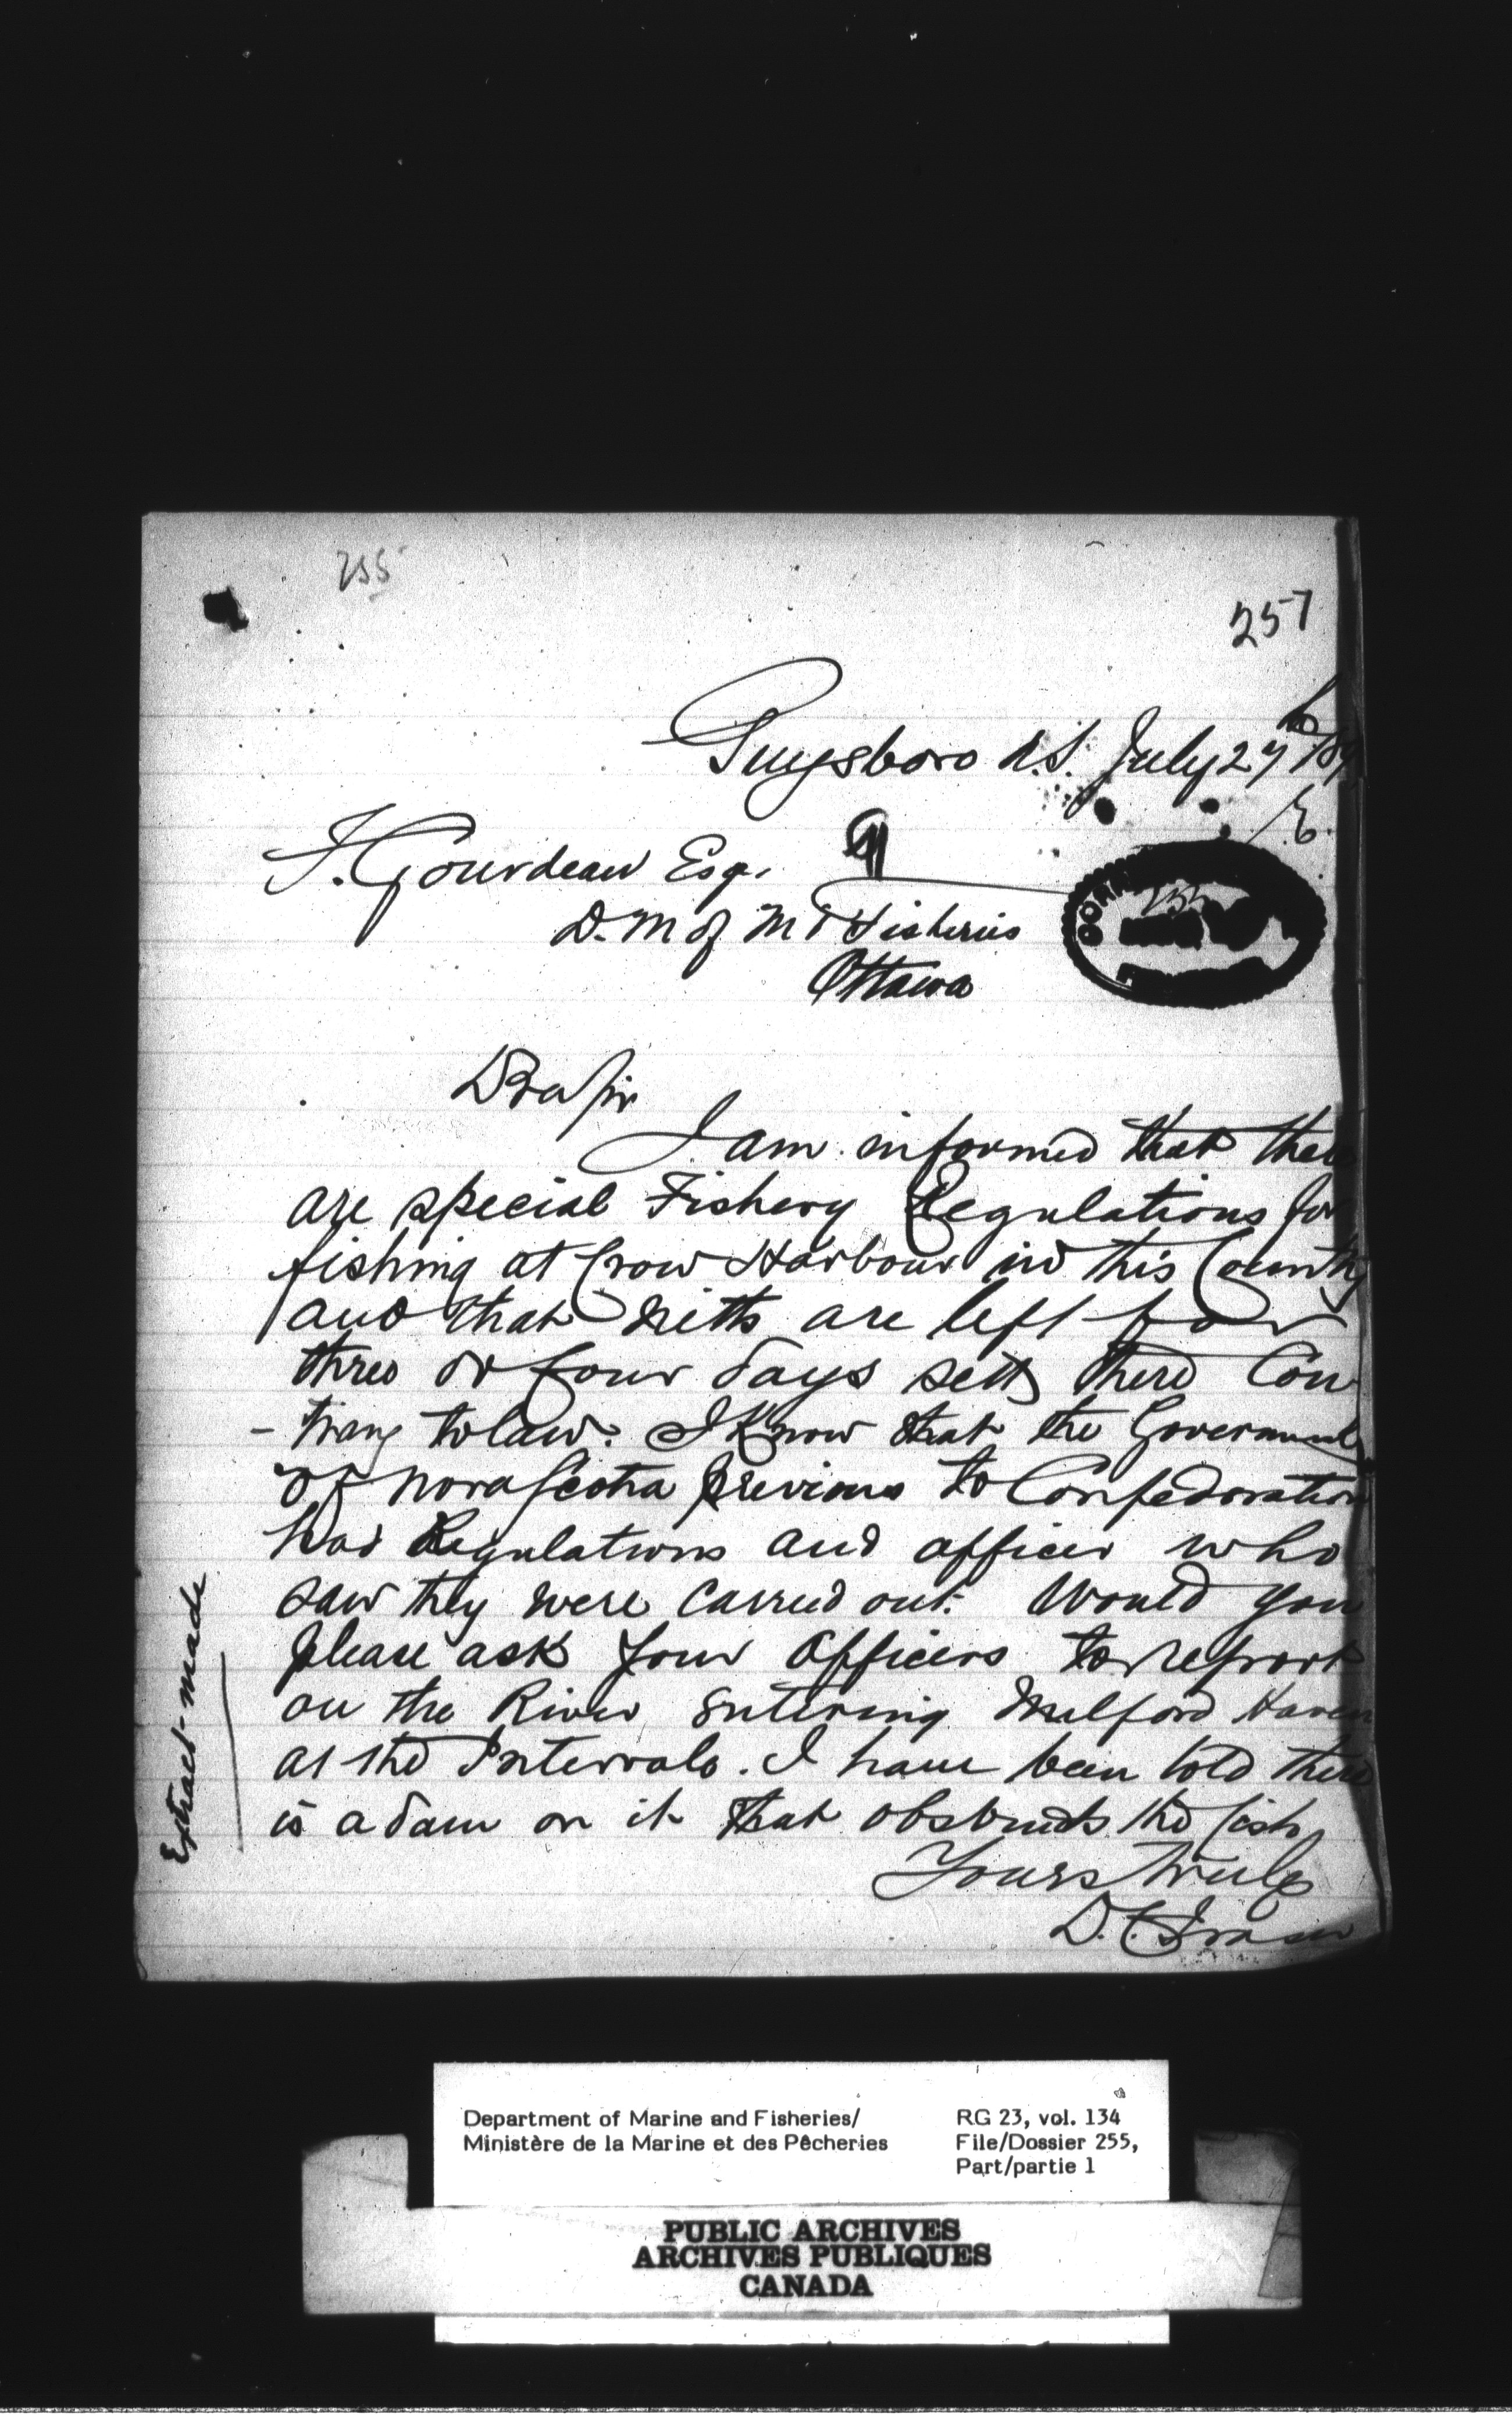 255
257
Guysboro N.S. July 27th /9
F. Gourdeau Esq.
D. M of M & Fisheries
Ottawa
255
Dear Sir
I am informed that there
are special Fishery Regulations for
fishing at Crow Harbour in this County
and that netts are left for
three or four days sett there Con
-trary to law. I know that the Government
of Nova Scotia previous to Confederation
had Regulations and officer who
saw they were carried out. Would you
please ask your Officers to report
on the River entering Milford Haven
at the Intervale. I have been told there
is a dam on it that obstructs the fish
Yours truly
D.C. Fraser
Extract made
Department of Marine and Fisheries/
Ministère de la Marine et des Pêcheries
RG 23, vol. 134
File/Dossier 255,
Part/partie 1
PUBLIC ARCHIVES
ARCHIVES PUBLIQUES
CANADA